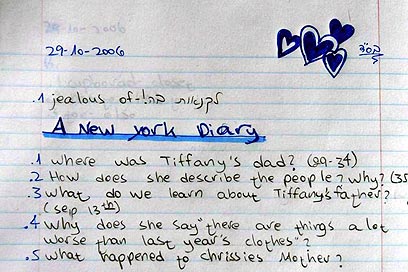 29-10-2006
בס"ד
.1 jealous of - לקנאות ב
A New york Diary
.1 where was Tiffany's dad? (29-34)
.2 How does she describe the people? why? (35
.3 what do we learn about Tiffany's father?
(sep 13th)
.4 why does she say "there are things a lot
worse than last year's clothes"?
.5 what happened to chrissies Mother?